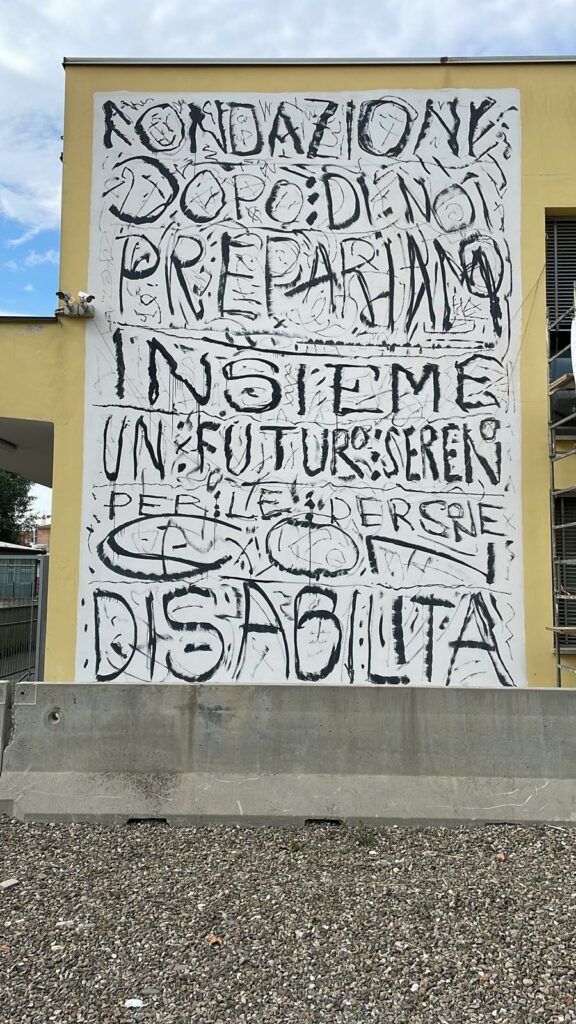 FONDAZIONE
DOPO:DI:NOI
PREPARIAMO
INSIEME
UN:FUTURO:SERENO
PER:LE:PERSONE
CON
DISABILITA